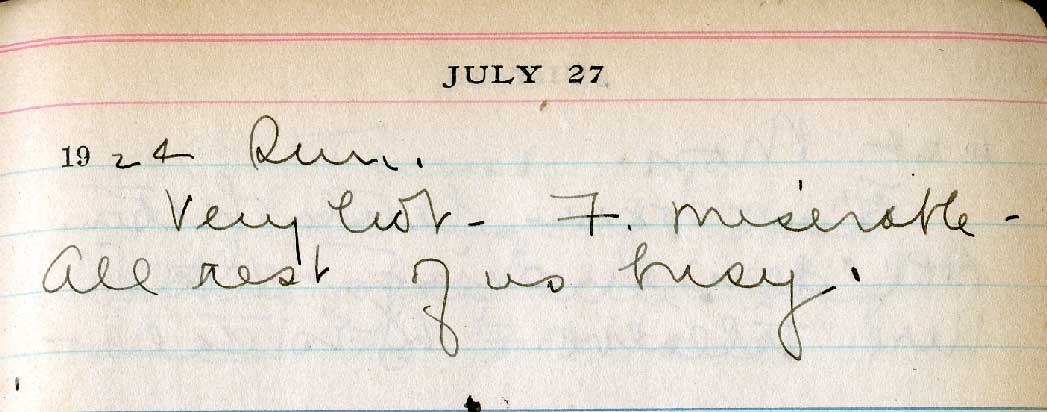 JULY 27
1924 Sun.
Very hot - F. miserable -
All rest of us busy.